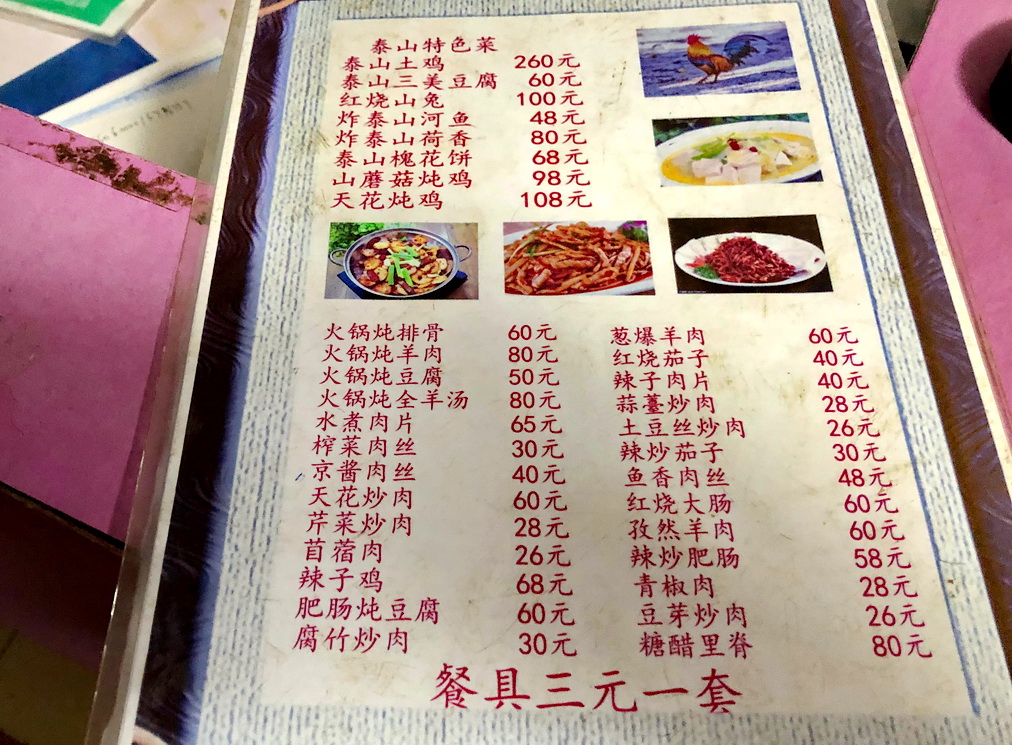 泰山特色菜
泰山土鸡 260元
泰山三美豆腐 60元
红烧山兔 100元
炸泰山河鱼 48元
炸泰山荷香 80元
泰山槐花饼 68元
山蘑菇炖鸡 98元
天花炖鸡 108元
火锅炖排骨 60元
火锅炖羊肉 80元
火锅炖豆腐 50元
火锅炖全羊汤 80元
水煮肉片 65元
榨菜肉丝 30元
京酱肉丝 40元
天花炒肉 60元
芹菜炒肉 28元
苜蓿肉 26元
辣子鸡 68元
肥肠炖豆腐 60元
腐竹炒肉 30元
葱爆羊肉 60元
红烧茄子 40元
辣子肉片 40元
蒜薹炒肉 28元
土豆丝炒肉 26元
辣炒茄子 30元
鱼香肉丝 48元
红烧大肠 60元
孜然羊肉 60元
辣炒肥肠 58元
青椒肉 28元
豆芽炒肉 26元
糖醋里脊 80元
餐具三元一套